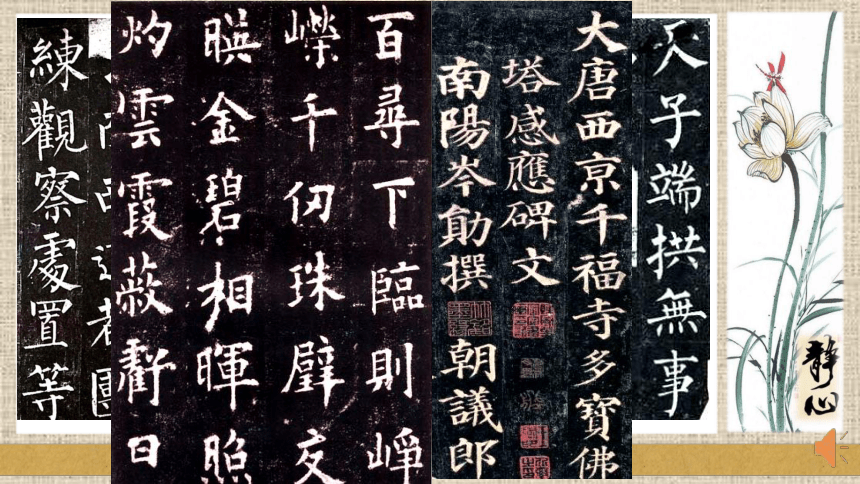 天子端拱無事
大唐西京千福寺多寶佛
塔感應碑文
南陽岑勛撰 朝議郎
百尋下臨則崢
嶸千仞珠壁交
暎金碧相暉照
灼雲霞蔽虧日
練觀察處置等
靜心